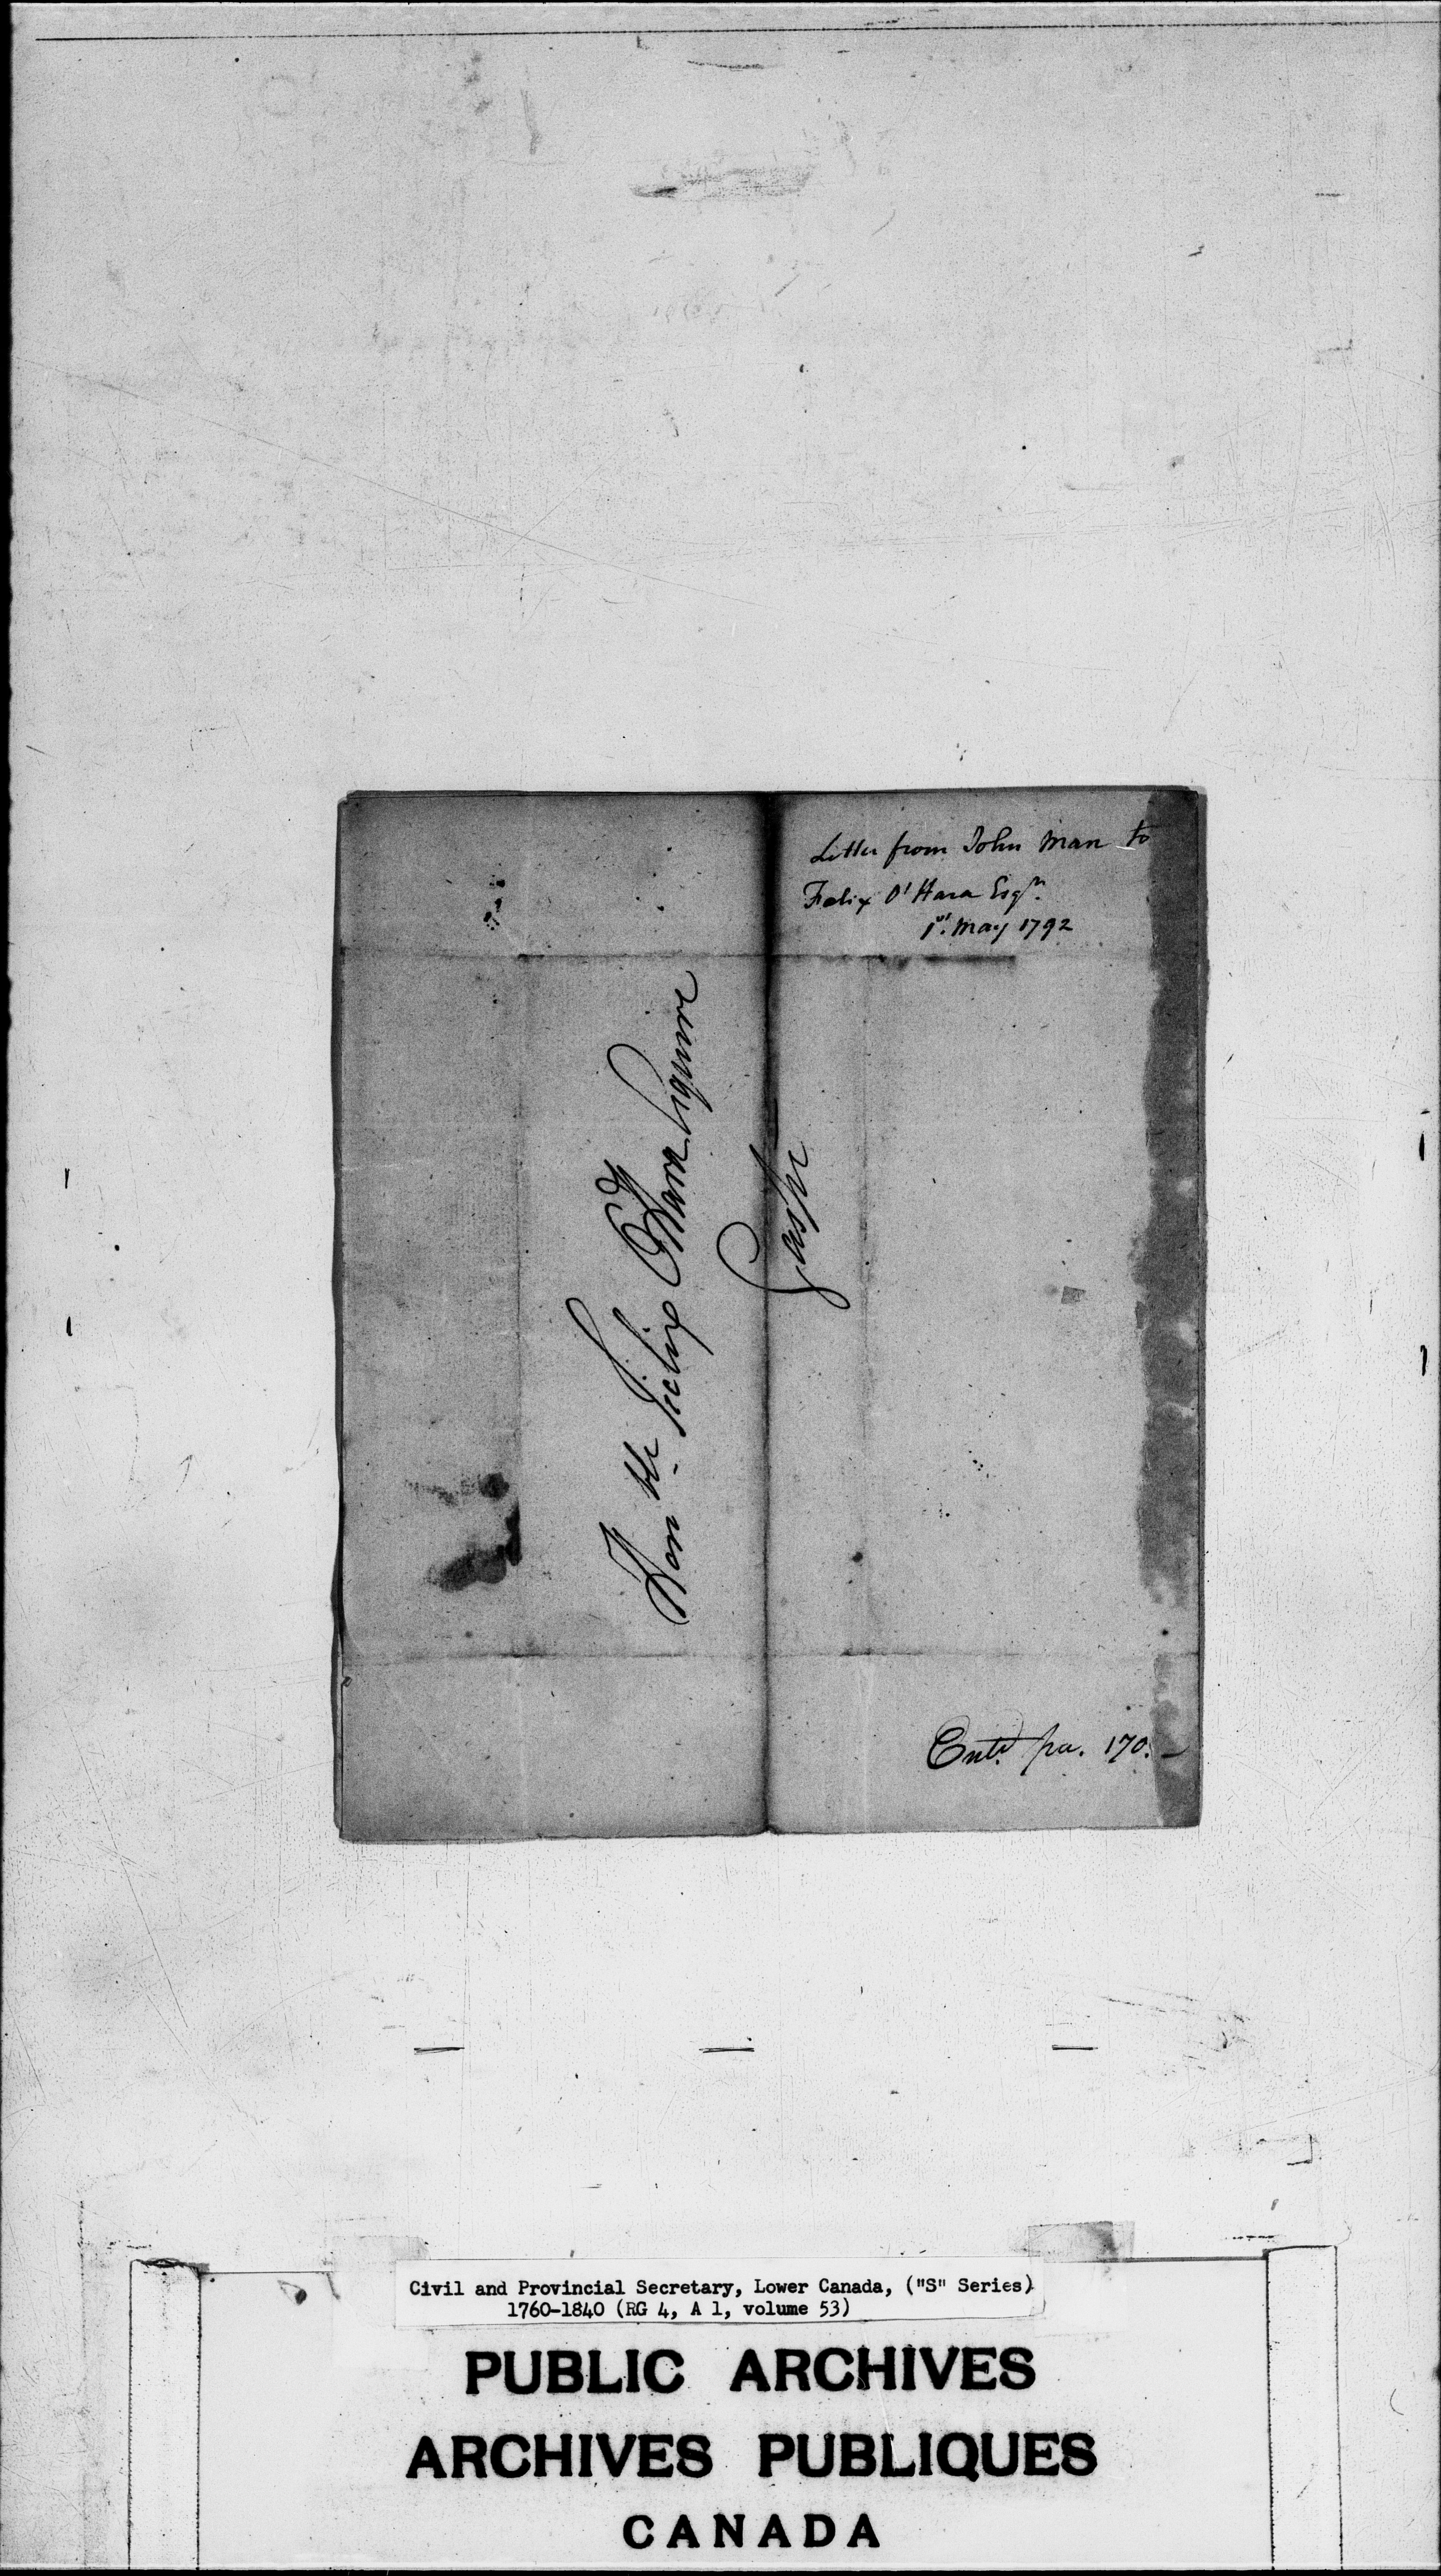 Letter from John Man to
Felix O'Hara Esqr.
1st. May 1792
Honble Felix O'Hara Esquire
Gaspe
Entd. pa. 170. -
Civil and Provincial Secretary, Lower Canada, ("S" Series)
1760-1840 (RG 4, A 1, volume 53)
PUBLIC ARCHIVES
ARCHIVES PUBLIQUES
CANADA